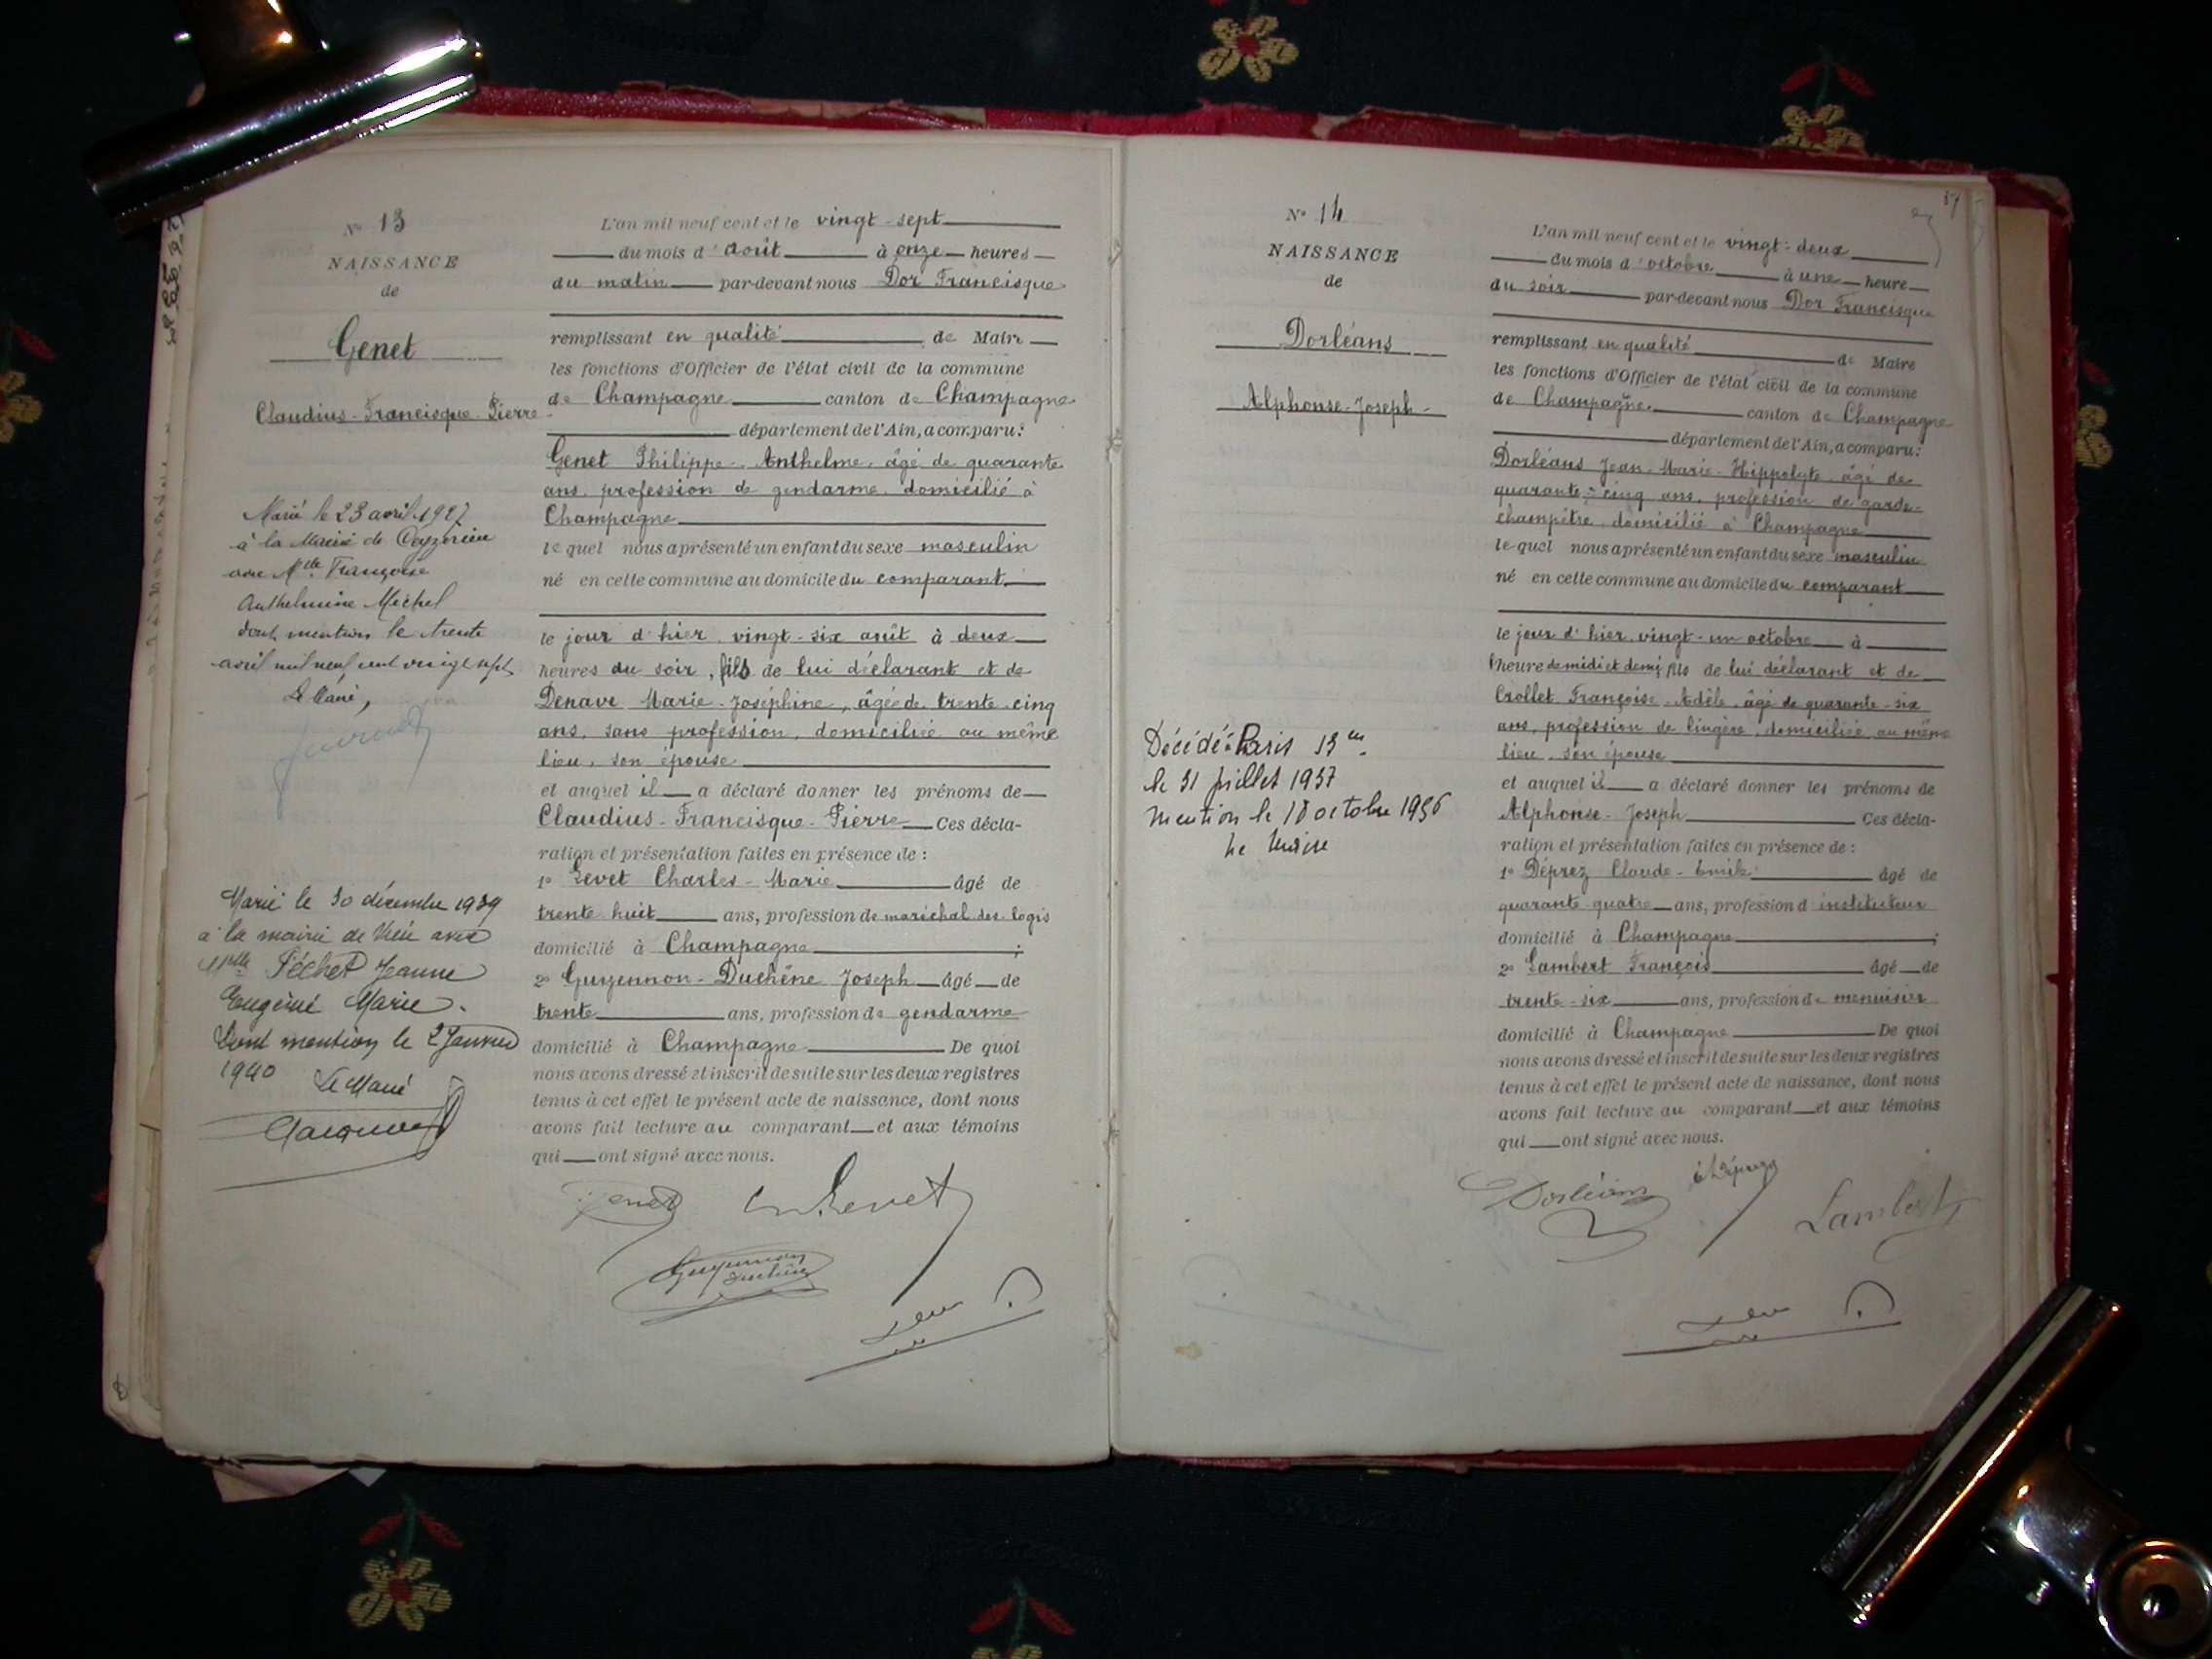 N° 13
NAISSANCE
de
Genet
Claudius-Francisque-Pierre
Marié le 23 avril 1927
à la Mairie de Ceyzérieu
avec Mlle Françoise
Anthelmine Michel
dont mention le trente
avril mil neuf cent vingt sept
Le Maire,
Marié le 30 décembre 1939
à la mairie de Vieu avec
Mlle Péchet Jeanne
Eugénie Marie.
Dont mention le 2 Janvier
1940 Le Maire
L'an mil neuf cent et le vingt-sept
du mois d'août à onze heures
du matin par-devant nous Dor Francisque
remplissant en qualité de Maire
les fonctions d'Officier de l'état civil de la commune
de Champagne canton de Champagne
département de l'Ain, a comparu:
Genet Philippe-Anthelme, âgé de quarante
ans, profession de gendarme, domicilié à
Champagne
lequel nous a présenté un enfant du sexe masculin
né en cette commune au domicile du comparant.
le jour d'hier, vingt-six août à deux
heures du soir, fils de lui déclarant et de
Denave Marie-Joséphine, âgée de trente cinq
ans, sans profession, domiciliée au même
lieu, son épouse
et auquel il a déclaré donner les prénoms de
Claudius-Francisque-Pierre Ces décla-
ration et présentation faites en présence de :
1° Levet Charles-Marie âgé de
trente huit ans, profession de maréchal des logis
domicilié à Champagne ;
2° Guyennon-Duchêne Joseph âgé de
trente ans, profession de gendarme
domicilié à Champagne De quoi
nous avons dressé et inscrit de suite sur les deux registres
tenus à cet effet le présent acte de naissance, dont nous
avons fait lecture au comparant et aux témoins
qui ont signé avec nous.
Genet Levet
Guyennon
Duchêne
N° 14
NAISSANCE
de
Dorléans
Alphonse-Joseph
Décédé à Paris 13
le 31 juillet 1937
Mention le 18 octobre 1956
Le Maire
L'an mil neuf cent et le vingt-deux
du mois d'octobre à une heure
du soir par-devant nous Dor Francisque
remplissant en qualité de Maire
les fonctions d'Officier de l'état civil de la commune
de Champagne canton de Champagne
département de l'Ain, a comparu:
Dorléans Jean-Marie-Hippolyte âgé de
quarante-cinq ans, profession de garde-
champêtre domicilié à Champagne
lequel nous a présenté un enfant du sexe masculin
né en cette commune au domicile du comparant
le jour d'hier, vingt-un octobre à
l'heure de midi et demi, fils de lui déclarant et de
Crollet Françoise-Adèle, âgé de quarante-six
ans, profession de lingère, domiciliée au même
lieu, son épouse
et auquel il a déclaré donner les prénoms de
Alphonse-Joseph Ces décla-
ration et présentation faites en présence de :
1° Déprez Claude-Emile âgé de
quarante quatre ans, profession d'instituteur
domicilié à Champagne ;
2° Lambert François âgé de
trente-six ans, profession de menuisier
domicilié à Champagne De quoi
nous avons dressé et inscrit de suite sur les deux registres
tenus à cet effet le présent acte de naissance, dont nous
avons fait lecture au comparant et aux témoins
qui ont signé avec nous.
Dorléans Déprez Lambert